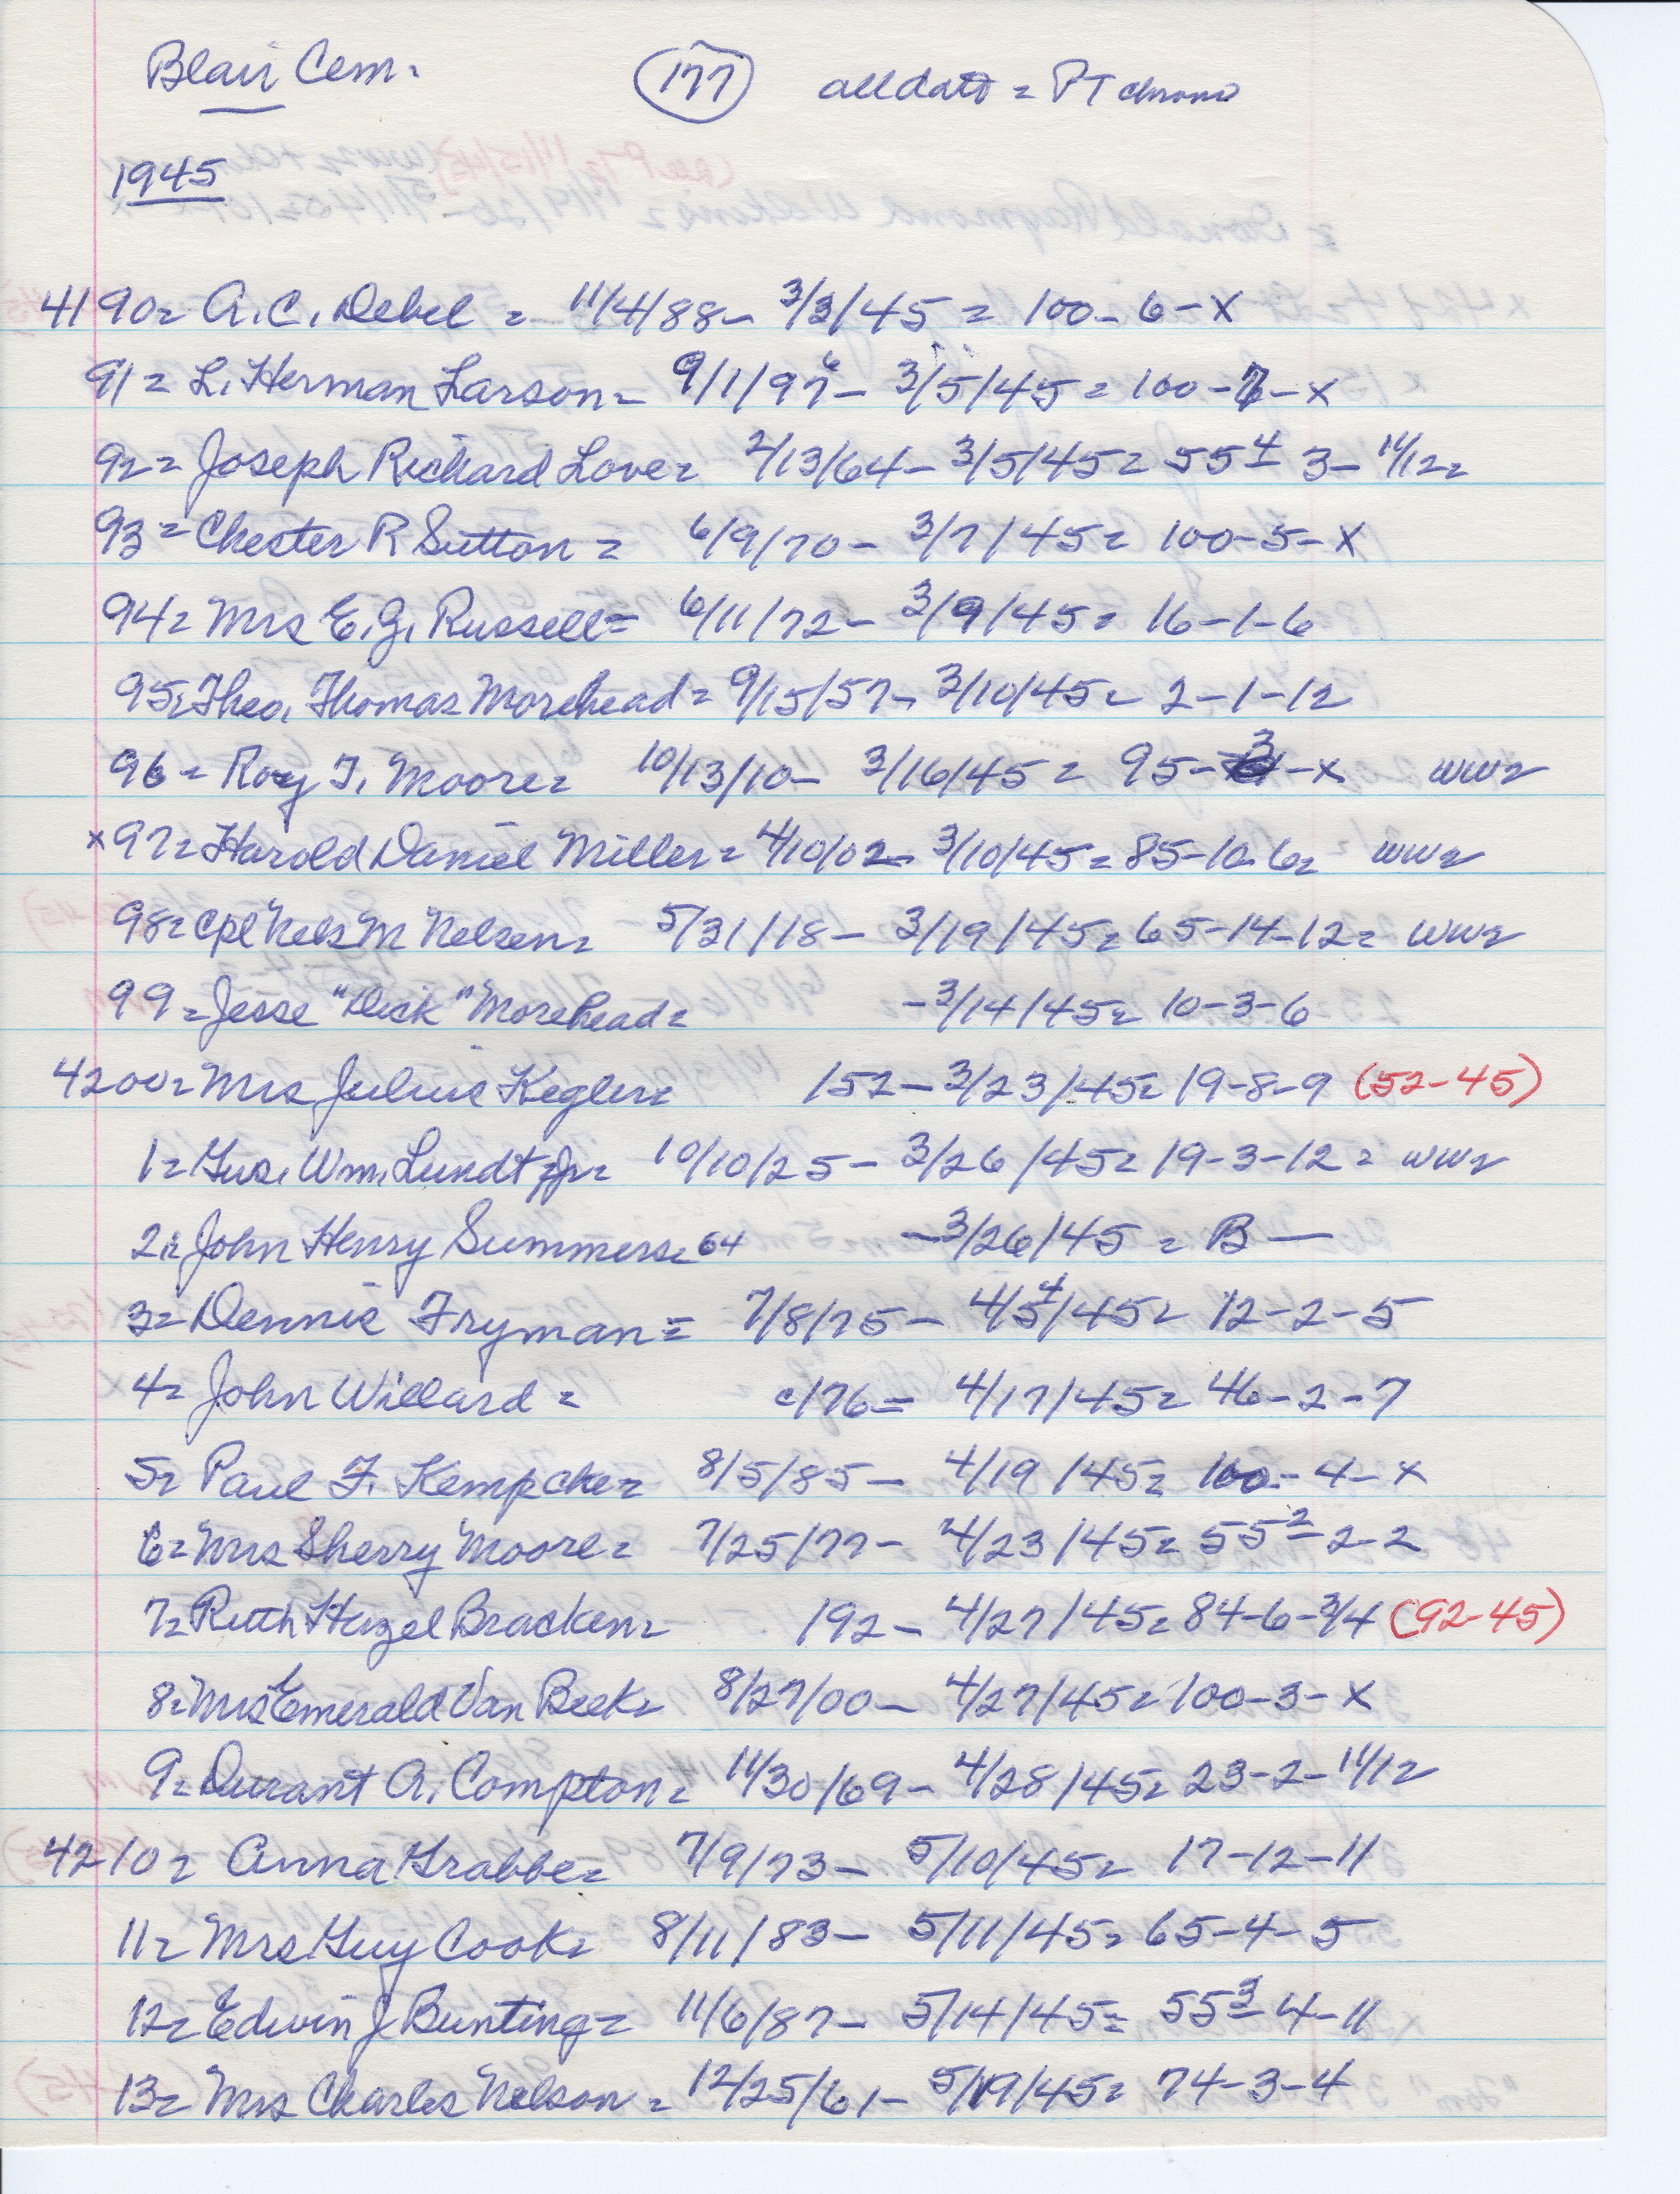 Blair Cem. 177 all data = PT chrono
1945
4190= A.C. Debel = 11/4/88- 3/3/45 = 100-6-x
91= L. Herman Larson= 9/1/97 6- 3/5/45= 100-7-x
92= Joseph Richard Love= 2/13/64- 3/5/45= 55 4- 3- 11/12=
93= Chester R Sutton = 6/9/70- 3/7/45= 100-5-x
94= Mrs E.G. Russell= 6/11/72- 3/9/45= 16-1-6
95= Theo. Thomas Morehead= 9/15/57- 3/10/45= 2-1-12
96= Roy T. Moore= 10/13/10- 3/16/45= 95-3-x ww2
x97= Harold Daniel Miller= 4/10/02- 3/10/45= 85-10-6= ww2
98= Cpl Nels M Nelsen= 5/31/18- 3/19/45= 65-14-12= ww2
99= Jesse "Dick" Morehead= -3/14/45= 10-3-6
4200= Mrs Julius Kegler= 152- 3/23/45= 19-8-9 (52-45)
1= Gus. Wm. Lundt Jr= 10/10/25- 3/26/45= 19-3-12= ww2
2= John Henry Summers= 64 -3/26/45= B-
3= Dennis Fryman= 7/8/75- 4/5 4/45= 12-2-5
4= John Willard= c176= 4/17/45= 46-2-7
5= Paul F. Kempcke= 8/5/85- 4/19/45= 100-4-x
6= Mrs Sherry Moore= 7/25/77- 4/23/45= 55 2- 2-2
7= Ruth Hazel Bracken= 192- 4/27/45= 84-6-3/4 (92-45)
8= Mrs Emerald Van Beek= 8/27/00- 4/27/45= 100-3-x
9= Durant A. Compton= 11/30/69- 4/28/45= 23-2-11/12
4210= Anna Grabbe= 7/9/73- 5/10/45= 17-12-11
11= Mrs Guy Cook= 8/11/83- 5/11/45= 65-4-5
12= Edwin J Bunting= 11/6/87- 5/14/45= 55 3- 4-11
13= Mrs Charles Nelson= 12/25/61- 5/19/45= 74-3-4